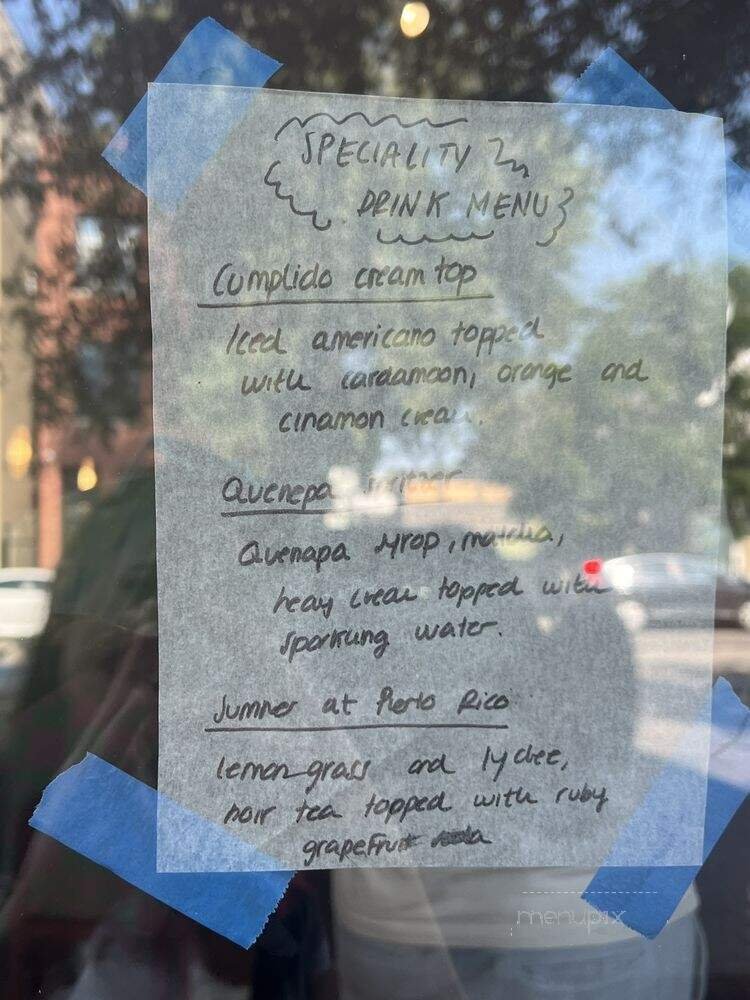 SPECIALITY
DRINK MENU
Cumplido cream top
Iced americano topped
with cardamoon, orange and
cinamon cream.
Quenepa
Quenapa syrop, matcha,
heavy cream topped with
sparkling water.
Summer at Puerto Rico
lemon grass and lychee,
hair tea topped with ruby
grapefruit soda
menupix